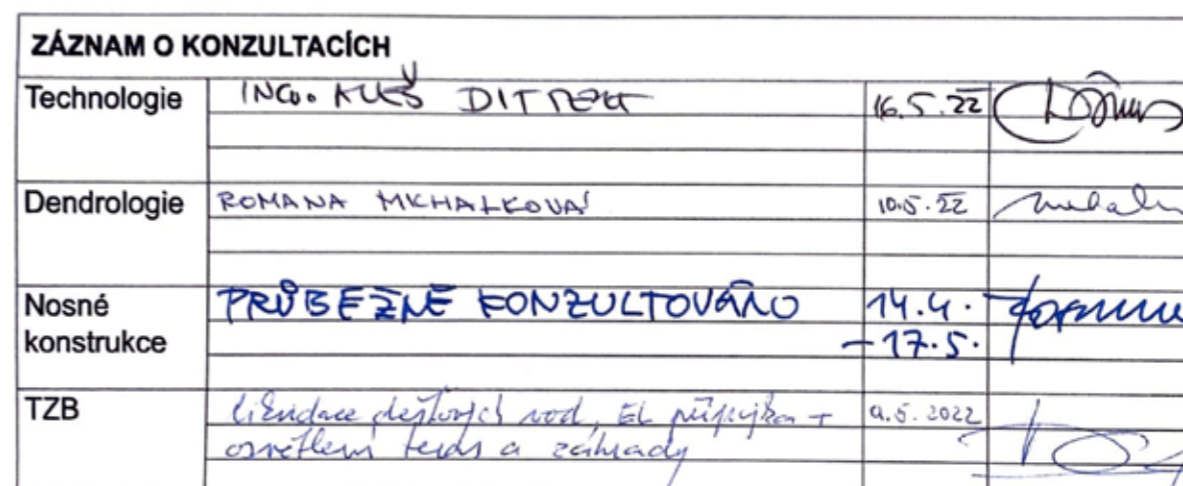 ZÁZNAM O KONZULTACÍCH
Technologie ING. ALEŠ DITTERT 16.5.22
Dendrologie ROMANA MICHALKOVÁ 10.5.22
Nosné PRŮBEŽNĚ KONZULTOVÁNO 14.4.
konstrukce - 17.5.
TZB likvidace dešťových vod, EL přípojka + 9.5.2022
osvětlení teras a zahrady